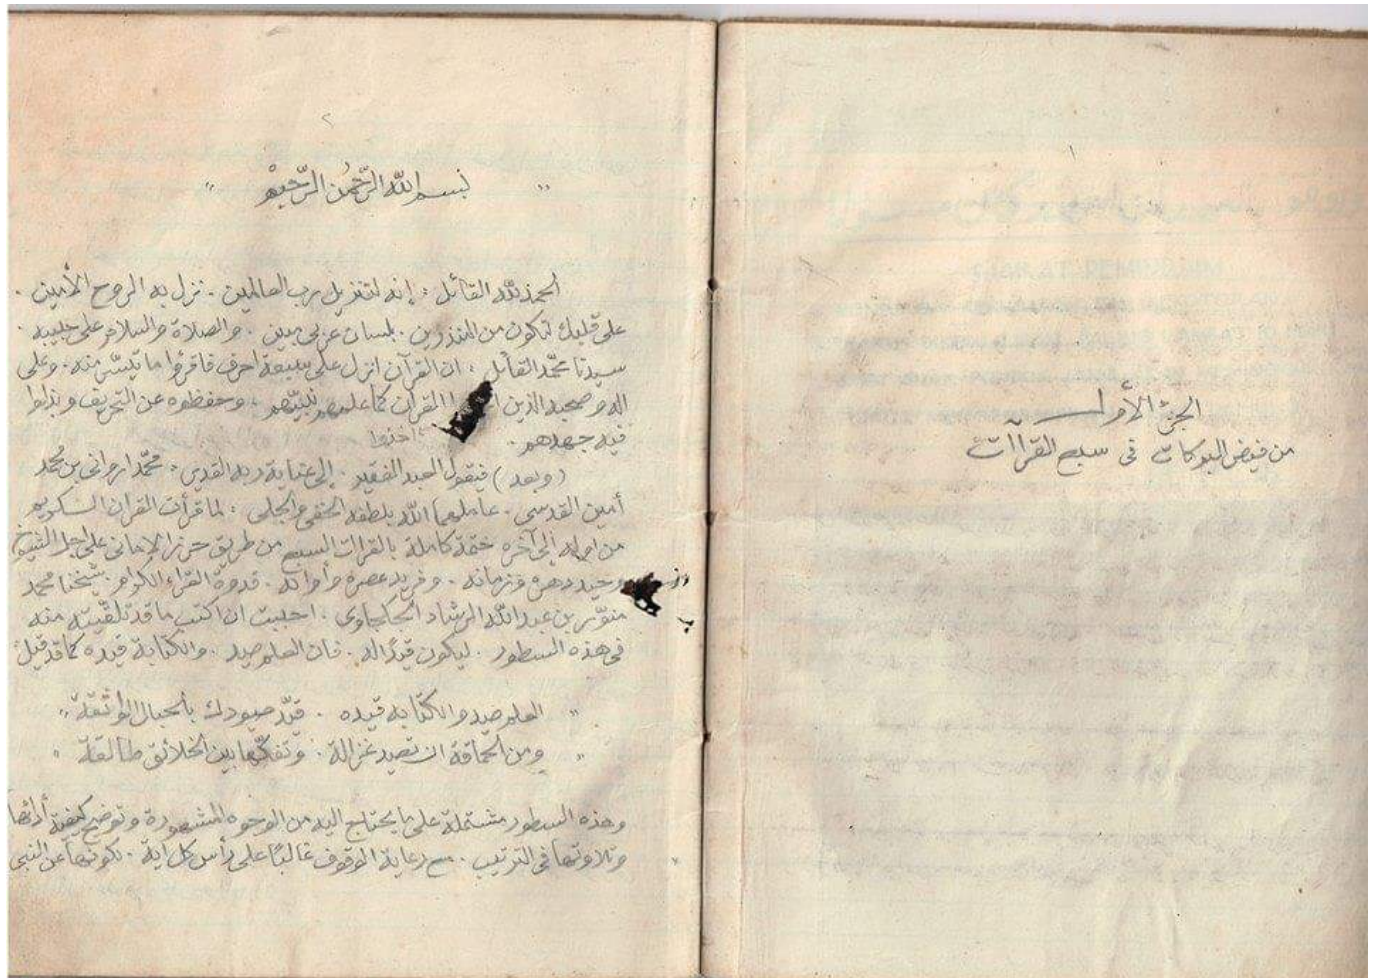 ١
الجزء الأول
من فيض البركات فى سبع القرآآت
٢
" بسم الله الرّحمٰن الرّحيمْ "
الحمد لله القائل : إنه لتنزيل رب العالمين . نزل به الروح الأمين .
على قلبك لتكون من المنذرين . بلسان عربي مبين . والصلاة والسلام على حبيبه .
سيدنا محمّد القائل : ان القرآن انزل على سبعة احرف فاقرؤا ما تيسّر منه . وعلى
اله وصحبه الذين القرآن كما علمهم نبيّهم . وحفظوه عن التحريف وبذلوا
فيه جهدهم . اخذوا
( وبعد ) فيقول العبد الفقير . إلى عناية ربه القدير : محمّد ارواني بن محمد
أمين القدسي . عاملهما الله بلطفه الخفى والجلى : لما قرأت القران الكريم
من اوله إلى آخره ختمة كاملة بالقرات السبع من طريق حرز الامانى على اجل الشيوخ
وحيد دهره وزمانه . وفريد عصره وأوانه . قدوة القراء الكرام . شيخنا محمد
منوّر بن عبد الله الرشاد الجكجاوى . احببت ان اكتب ما قد تلقّيته منه
فى هذه السطور . ليكون قيدًا له . فان العلم صيد . والكتابة قيده كما قد قيل
" العلم صيد والكتابة قيده . قيّد صيودك بالحبال الواثقة "
" ومن الحماقة ان تصيد غزالة . وتفكّها بين الخلائق طالقة "
وهذه السطور مشتملة على ما يحتاج اليه من الوجوه المشهورة وتوضح كيفية أدائها
وتلاوتها فى الترتيب . مع رعاية الوقوف غالبًا على رأس كل اية . لكونها عن النبى